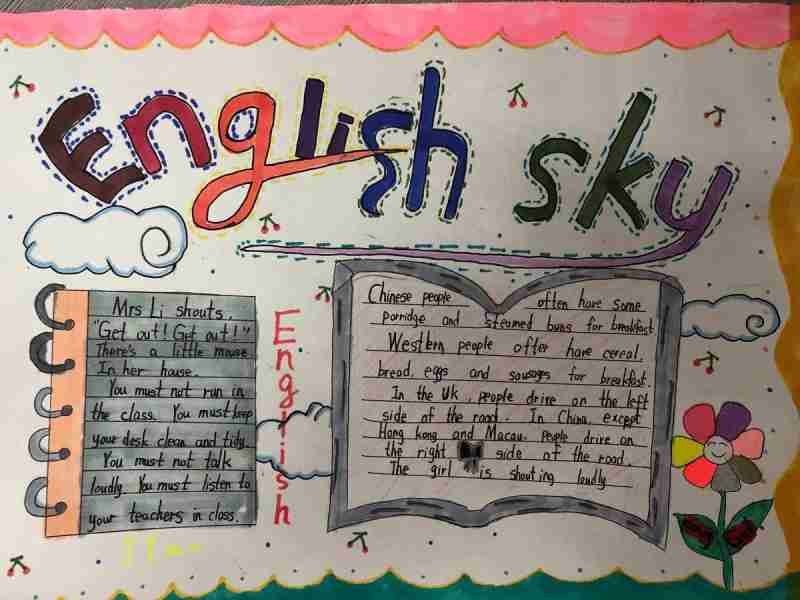 English sky
Mrs Li shouts,
"Get out! Get out!"
There's a little mouse
In her hause.
You must not run in
the class. You must keep
your desk clean and tidy.
You must not talk
loudly. You must listen to
your teachers in class.
English
Chinese people often have some
porridge and steamed buns for breakfast
Western people often have cereal,
bread, eggs and sausages for breakfast.
In the UK, people drire on the left
side of the road. In China, except
Hong kong and Macau, people drire on
the right side of the road.
The girl is shouting loudly